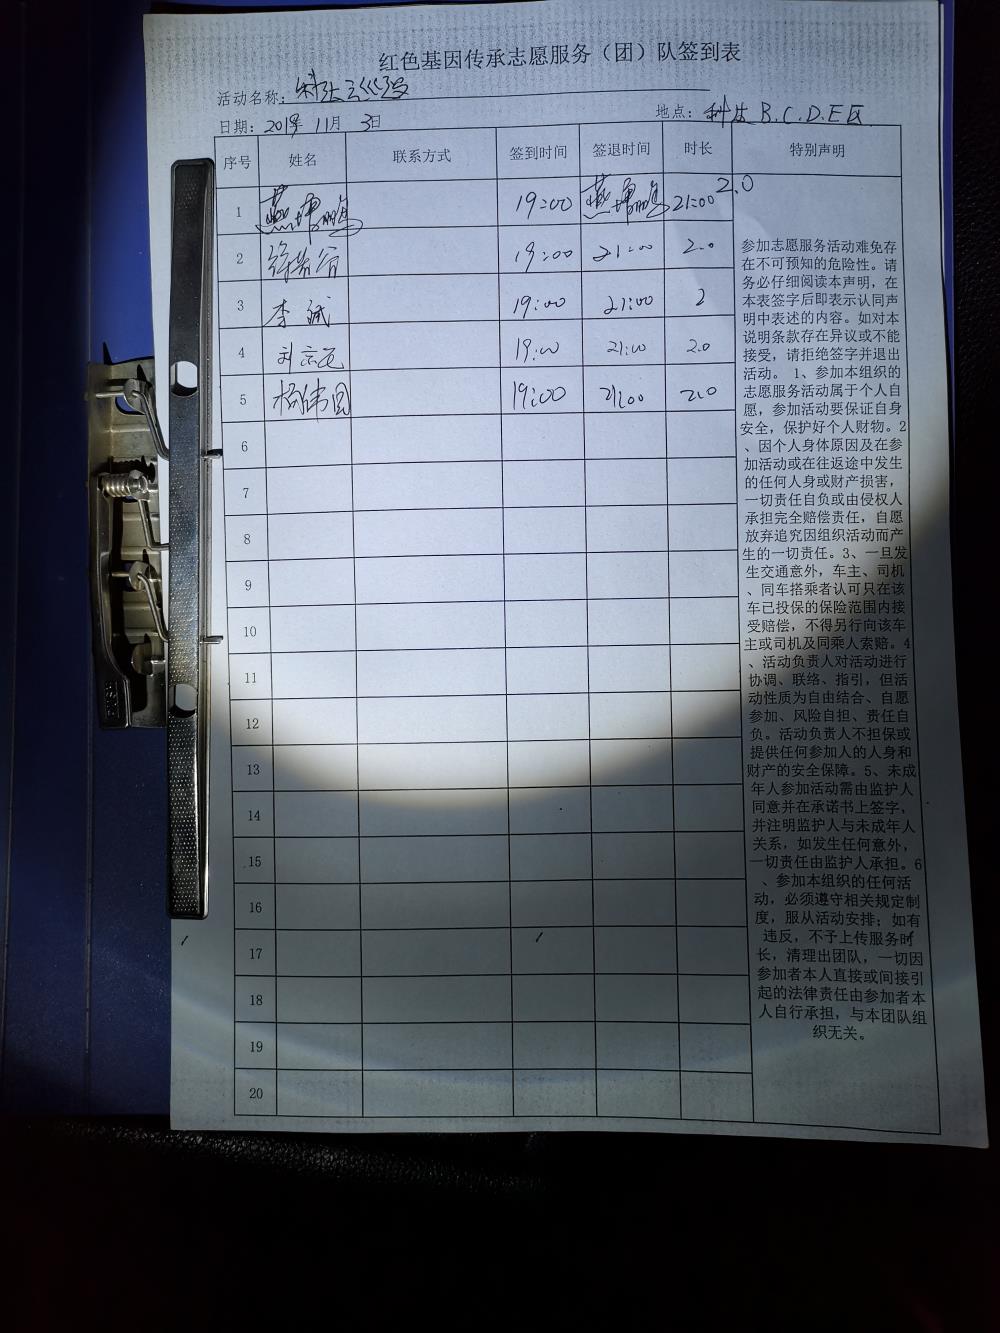 红色基因传承志愿服务（团）队签到表
活动名称：
日期：2019年 11月 3日
地点： B.C.D.E区
序号 姓名 联系方式 签到时间 签退时间 时长 特别声明
1 19:00 21:00 2.0
2 19:00 21:00 2.0
3 李 19:00 21:00 2
4 刘 19:00 21:00 2.0
5 杨伟国 19:00 21:00 2.0
6
7
8
9
10
11
12
13
14
15
16
17
18
19
20
参加志愿服务活动难免存
在不可预知的危险性。请
务必仔细阅读本声明，在
本表签字后即表示认同声
明中表述的内容。如对本
说明条款存在异议或不能
接受，请拒绝签字并退出
活动。 1、参加本组织的
志愿服务活动属于个人自
愿，参加活动要保证自身
安全，保护好个人财物。2
、因个人身体原因及在参
加活动或在往返途中发生
的任何人身或财产损害，
一切责任自负或由侵权人
承担完全赔偿责任，自愿
放弃追究因组织活动而产
生的一切责任。3、一旦发
生交通意外，车主、司机
、同车搭乘者认可只在该
车已投保的保险范围内接
受赔偿，不得另行向该车
主或司机及同乘人索赔。4
、活动负责人对活动进行
协调、联络、指引，但活
动性质为自由结合、自愿
参加、风险自担、责任自
负。活动负责人不担保或
提供任何参加人的人身和
财产的安全保障。5、未成
年人参加活动需由监护人
同意并在承诺书上签字，
并注明监护人与未成年人
关系，如发生任何意外，
一切责任由监护人承担。6
、参加本组织的任何活
动，必须遵守相关规定制
度，服从活动安排；如有
违反，不予上传服务时
长，清理出团队，一切因
参加者本人直接或间接引
起的法律责任由参加者本
人自行承担，与本团队组
织无关。